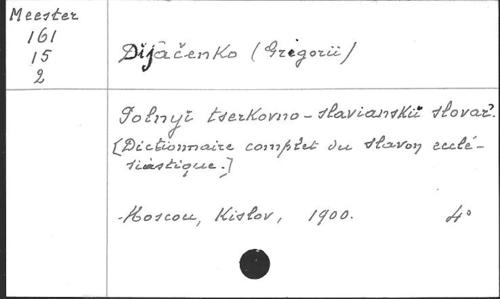 Meester
161
15
2
Dijačenko (Grigorii)
Polnyĭ tserkovno-slavianskiĭ slovar'.
[Dictionnaire complet du slavon ecclé-
siastique.]
Moscou, Kislov, 1900. 4°